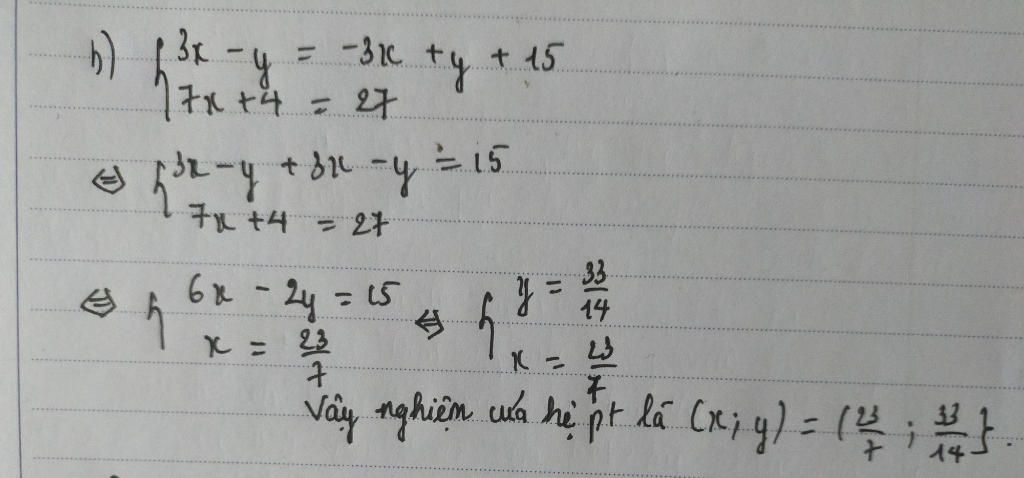 h) { 3x - y = -3x + y + 15
7x + 4 = 27
⇔ { 3x - y + 3x - y = 15
7x + 4 = 27
⇔ { 6x - 2y = 15 ⇔ { y = 33/14
x = 23/7 x = 23/7
Vậy nghiệm của hệ pt là (x; y) = (23/7 ; 33/14}.